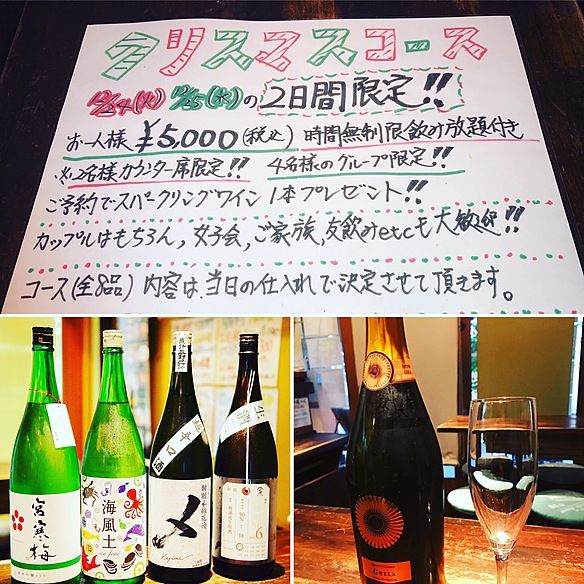 クリスマスコース
12/24(火) 12/25(水)の2日間限定!!
お一人様 ¥5,000(税込) 時間無制限飲み放題付き
※2名様カウンター席限定!! 4名様のグループ限定!!
ご予約でスパークリングワイン1本プレゼント!!
カップルはもちろん,女子会,ご家族,友飲みetcも大歓迎!!
コース(全8品) 内容は、当日の仕入れで決定させて頂きます。
宮寒梅
海風土
sea food
超辛口
〆
生酒
6
GRELA